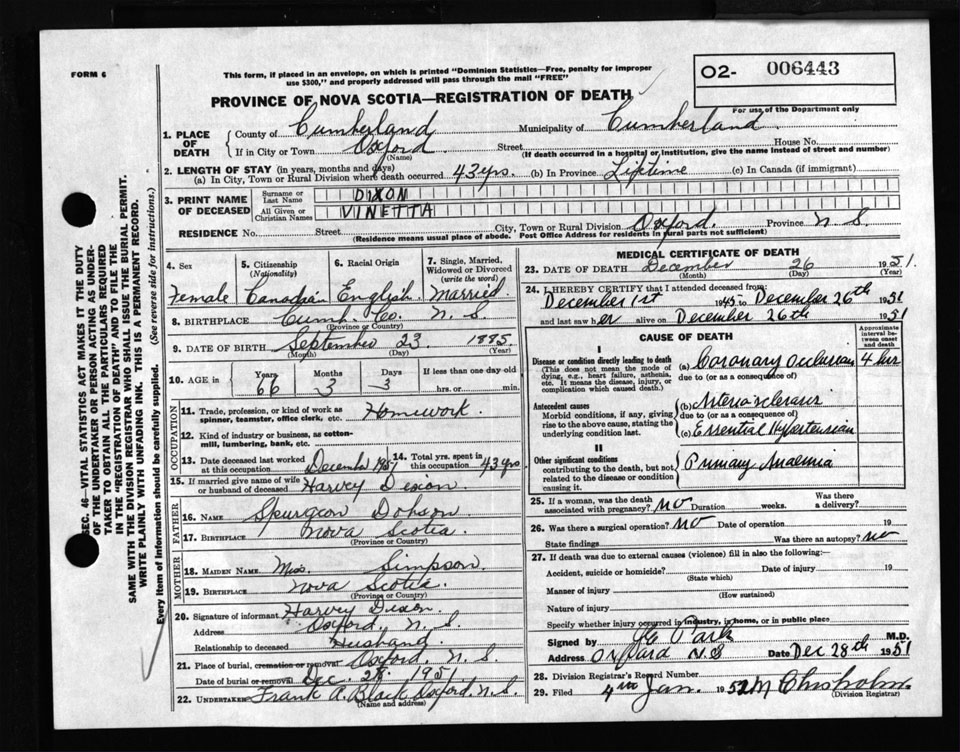 FORM 6
This form, if placed in an envelope, on which is printed "Dominion Statistics—Free, penalty for improper
use $300," and properly addressed will pass through the mail "FREE"
O2- 006443
For use of the Department only
PROVINCE OF NOVA SCOTIA—REGISTRATION OF DEATH
1. PLACE OF DEATH County of Cumberland Municipality of Cumberland
If in City or Town Oxford Street House No.
(Name) (If death occurred in a hospital or institution, give the name instead of street and number)
2. LENGTH OF STAY (in years, months and days)
(a) In City, Town or Rural Division where death occurred 43 yrs. (b) In Province Lifetime (c) In Canada (if immigrant)
3. PRINT NAME OF DECEASED Surname or Last Name DIXON
All Given or Christian Names VINETTA
RESIDENCE No. Street City, Town or Rural Division Oxford. Province N.S
(Residence means usual place of abode. Post Office Address for residents in rural parts not sufficient)
4. Sex Female
5. Citizenship (Nationality) Canadian
6. Racial Origin English
7. Single, Married, Widowed or Divorced (write the word) Married
8. BIRTHPLACE Cumb. Co. N.S
(Province or Country)
9. DATE OF BIRTH September 23 1885
(Month) (Day) (Year)
10. AGE in Years 66 Months 3 Days 3 If less than one day old hrs. or min.
OCCUPATION
11. Trade, profession, or kind of work as spinner, teamster, office clerk, etc. Homework.
12. Kind of industry or business, as cotton-mill, lumbering, bank, etc.
13. Date deceased last worked at this occupation December 1951
14. Total yrs. spent in this occupation 43 yrs
15. If married give name of wife or husband of deceased Harvey Dixon
FATHER
16. NAME Spurgeon Dobson
17. BIRTHPLACE Nova Scotia
(Province or Country)
MOTHER
18. MAIDEN NAME Miss Simpson
19. BIRTHPLACE Nova Scotia.
(Province or Country)
20. Signature of informant Harvey Dixon.
Address Oxford, N.S.
Relationship to deceased Husband
21. Place of burial, cremation or removal Oxford, N.S.
Date of burial or removal Dec. 28. 1951
22. UNDERTAKER Frank A. Black, Oxford, N.S.
(Name and address)
MEDICAL CERTIFICATE OF DEATH
23. DATE OF DEATH December 26 1951.
(Month) (Day) (Year)
24. I HEREBY CERTIFY that I attended deceased from:
December 1st 1945 to December 26th 1951
and last saw her alive on December 26th 1951
CAUSE OF DEATH
Approximate interval between onset and death
I
Disease or condition directly leading to death
(This does not mean the mode of dying, e.g., heart failure, asthenia, etc. It means the disease, injury, or complication which caused death.)
(a) Coronary Occlusion 4 hrs
due to (or as a consequence of)
Antecedent causes
Morbid conditions, if any, giving rise to the above cause, stating the underlying condition last.
(b) Arteriosclerosis
due to (or as a consequence of)
(c) Essential Hypertension
II
Other significant conditions
contributing to the death, but not related to the disease or condition causing it.
Primary Anaemia
25. If a woman, was the death associated with pregnancy? no Duration weeks. Was there a delivery?
26. Was there a surgical operation? no Date of operation 19
State findings Was there an autopsy? no
27. If death was due to external causes (violence) fill in also the following:—
Accident, suicide or homicide? Date of injury 19
(State which)
Manner of injury
(How sustained)
Nature of injury
Specify whether injury occurred in industry, in home, or in public place
Signed by Park M.D.
Address Oxford NS Date Dec 28th 1951
28. Division Registrar's Record Number
29. Filed 4th Jan. 1952 M Chisholm.
(Division Registrar)
SEC. 46—VITAL STATISTICS ACT MAKES IT THE DUTY
OF THE UNDERTAKER OR PERSON ACTING AS UNDER-
TAKER TO OBTAIN ALL THE PARTICULARS REQUIRED
IN THE "REGISTRATION OF DEATH" AND TO FILE THE
SAME WITH THE DIVISION REGISTRAR WHO SHALL ISSUE THE BURIAL PERMIT.
WRITE PLAINLY WITH UNFADING INK. THIS IS A PERMANENT RECORD.
Every Item of Information should be carefully supplied. (See reverse side for instructions.)